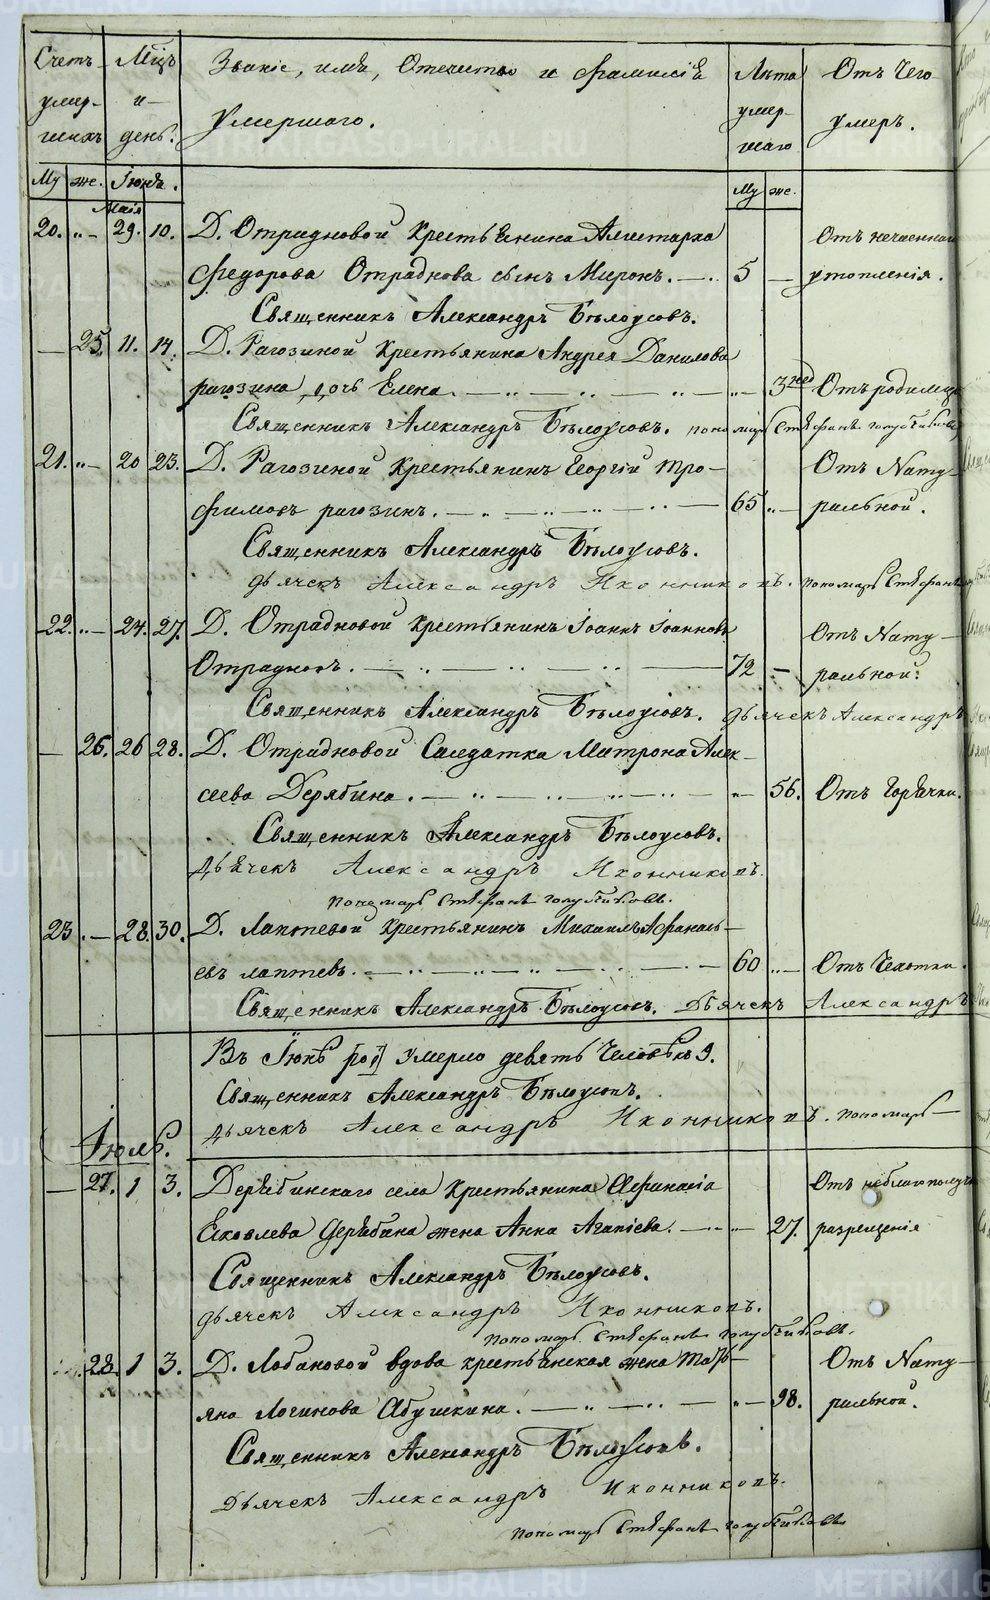 Счетъ умер-шихъ
Мцъ и день.
Званіе, имя, Отечество и фамилія Умершаго.
Лѣта умер-шаго
Отъ Чего умеръ.
Му же. Іюнь. Му же.
Маія
20. „ 29. 10. Д. Отрадновой Крестьянина Аристарха
Федорова Отраднова сынъ Миронъ. 5 — Отъ нечаеннаго утопленія.
Священникъ Александръ Бѣлоусовъ.
— 25. 11. 14. Д. Рагозиной Крестьянина Андрея Данилова
рагозина дочь Елена. „ 3 нед Отъ родимца
Священникъ Александръ Бѣлоусовъ. пономарь Стефанъ Голубчиковъ
21. „ 20 23. Д. Рагозиной Крестьянинъ Георгій Тро-
фимовъ рагозинъ. 65 „ Отъ Нату-ральной.
Священникъ Александръ Бѣлоусовъ.
Дьячекъ Александръ Иконниковъ. пономарь Стефанъ
22. „ 24. 27. Д. Отрадновой Крестьянинъ Іоаннъ Іоанновъ
Отрадновъ. 72 — Отъ Нату-ральной.
Священникъ Александръ Бѣлоусовъ. Дьячекъ Александръ
— 26. 26 28. Д. Отрадновой Салдатка Матрона Алек-
сеева Дерябина. „ 56. Отъ Горячки.
Священникъ Александръ Бѣлоусовъ.
Дьячекъ Александръ Иконниковъ.
пономарь Стефанъ Голубчиковъ.
23. — 28. 30. Д. Лаптевой Крестьянинъ Михаилъ Афанась-
евъ лаптевъ. 60 „ Отъ Чехотки.
Священникъ Александръ Бѣлоусовъ. Дьячекъ Александръ
Въ Іюнѣ умерло девять Человѣкъ 9.
Священникъ Александръ Бѣлоусовъ.
Дьячекъ Александръ Иконниковъ. пономарь
Іюль.
— 27. 1 3. Дерябинскаго села Крестьянина Афанасія
Яковлева Дерябина жена Анна Агапіева. „ 27. Отъ разрешенія
Священникъ Александръ Бѣлоусовъ.
Дьячекъ Александръ Иконниковъ.
пономарь Стефанъ Голубчиковъ.
28. 1 3. Д. Лобановой вдова крестьянская жена Тать-
яна Логинова Абушкина. „ 98. Отъ Нату-ральной.
Священникъ Александръ Бѣлоусовъ.
Дьячекъ Александръ Иконниковъ.
пономарь Стефанъ Голубчиковъ
METRIKI.GASO-URAL.RU